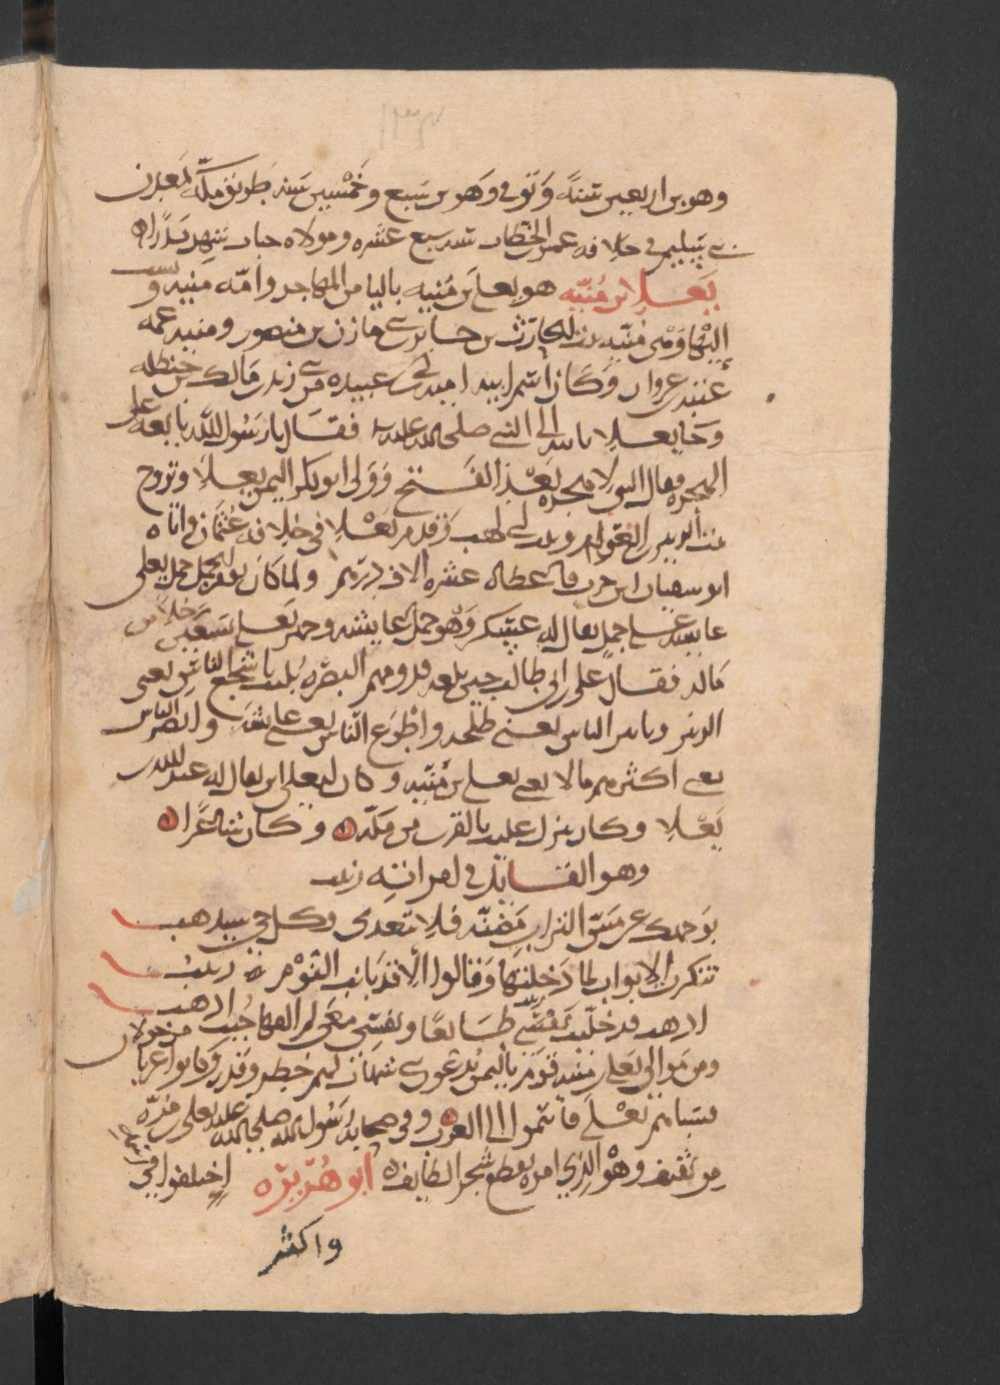 وهو بن اربعين سنة وتوفي وهو بن سبع وخمسين سنة بطريق مكة بمعدن
بني سليم في خلافه عمر بن الخطاب سنة سبع عشره ومولاه حباب شهد بدرا
يعلا بن مُنيّه هو يعلي بن مُنيه باليا من المهاجر وامّه منيه و نسب
اليها وهي مُنيّه بنت الحارث بن جابر بني مازن بن منصور ومنيه عمه
عتبه بن غزوان وكان اسم ابيه اميه بن ابي عبيده من بني زيد بن مالك بن حنظله
وجا يعلا بابيه الي النبي صلى الله عليه فقال يا رسول الله بايعه على
الهجره فقال النبي لا هجره بعد الفتح وولى ابو بكر اليمن يعلا وتزوج
بنت الزبير بن العوام وبنت ابي لهب وقدم يعلا في خلافه عثمان واتاه
ابو سفيان ابن حرب فاعطاه عشره الاف درهم ولما كان يوم الجمل حمل يعلى
عايشه على جمل يقال له عسكر وهو جمل عايشه وجهز يعلى سبعين رجلا من
ماله فقال علي بن ابي طالب حين بلغه قدومهم البصره بُليت باشجع الناس يعني
الزبير وبابين الناس يعني طلحه واطوع الناس يعني عايشه وانض الناس
يعني اكثرهم مالا يعني يعلى بن منيه وكان ليعلي ابن يقال له عبد الله بن
يعلا وكان ينزل عليه بالقرب من مكة وكان شاعرا
وهو القايل في امراته زينب
بوجهك عن مس التراب مضنّه فلا تبعدى وكل حي سيذهب
تنكرت الابواب لما دخلتها وقالوا الا قد بانت اليوم زينب
اذهب قد خليت زينب طايعا ونفسي معي لم القها حيث اذهب
ومن موالي يعلى بن منيه قوم باليمن يدعون بني شهاب لهم خطر وقدر وكانوا اعرابا من خولان
سباهم يعلى فانتموا الى العرب وفي صحابه رسول الله صلى الله عليه يعلى بن مره
من ثقيف وهو الذي امره بقطع شجر الطايف ابو هريره اختلفوا في اسمه
واكثر